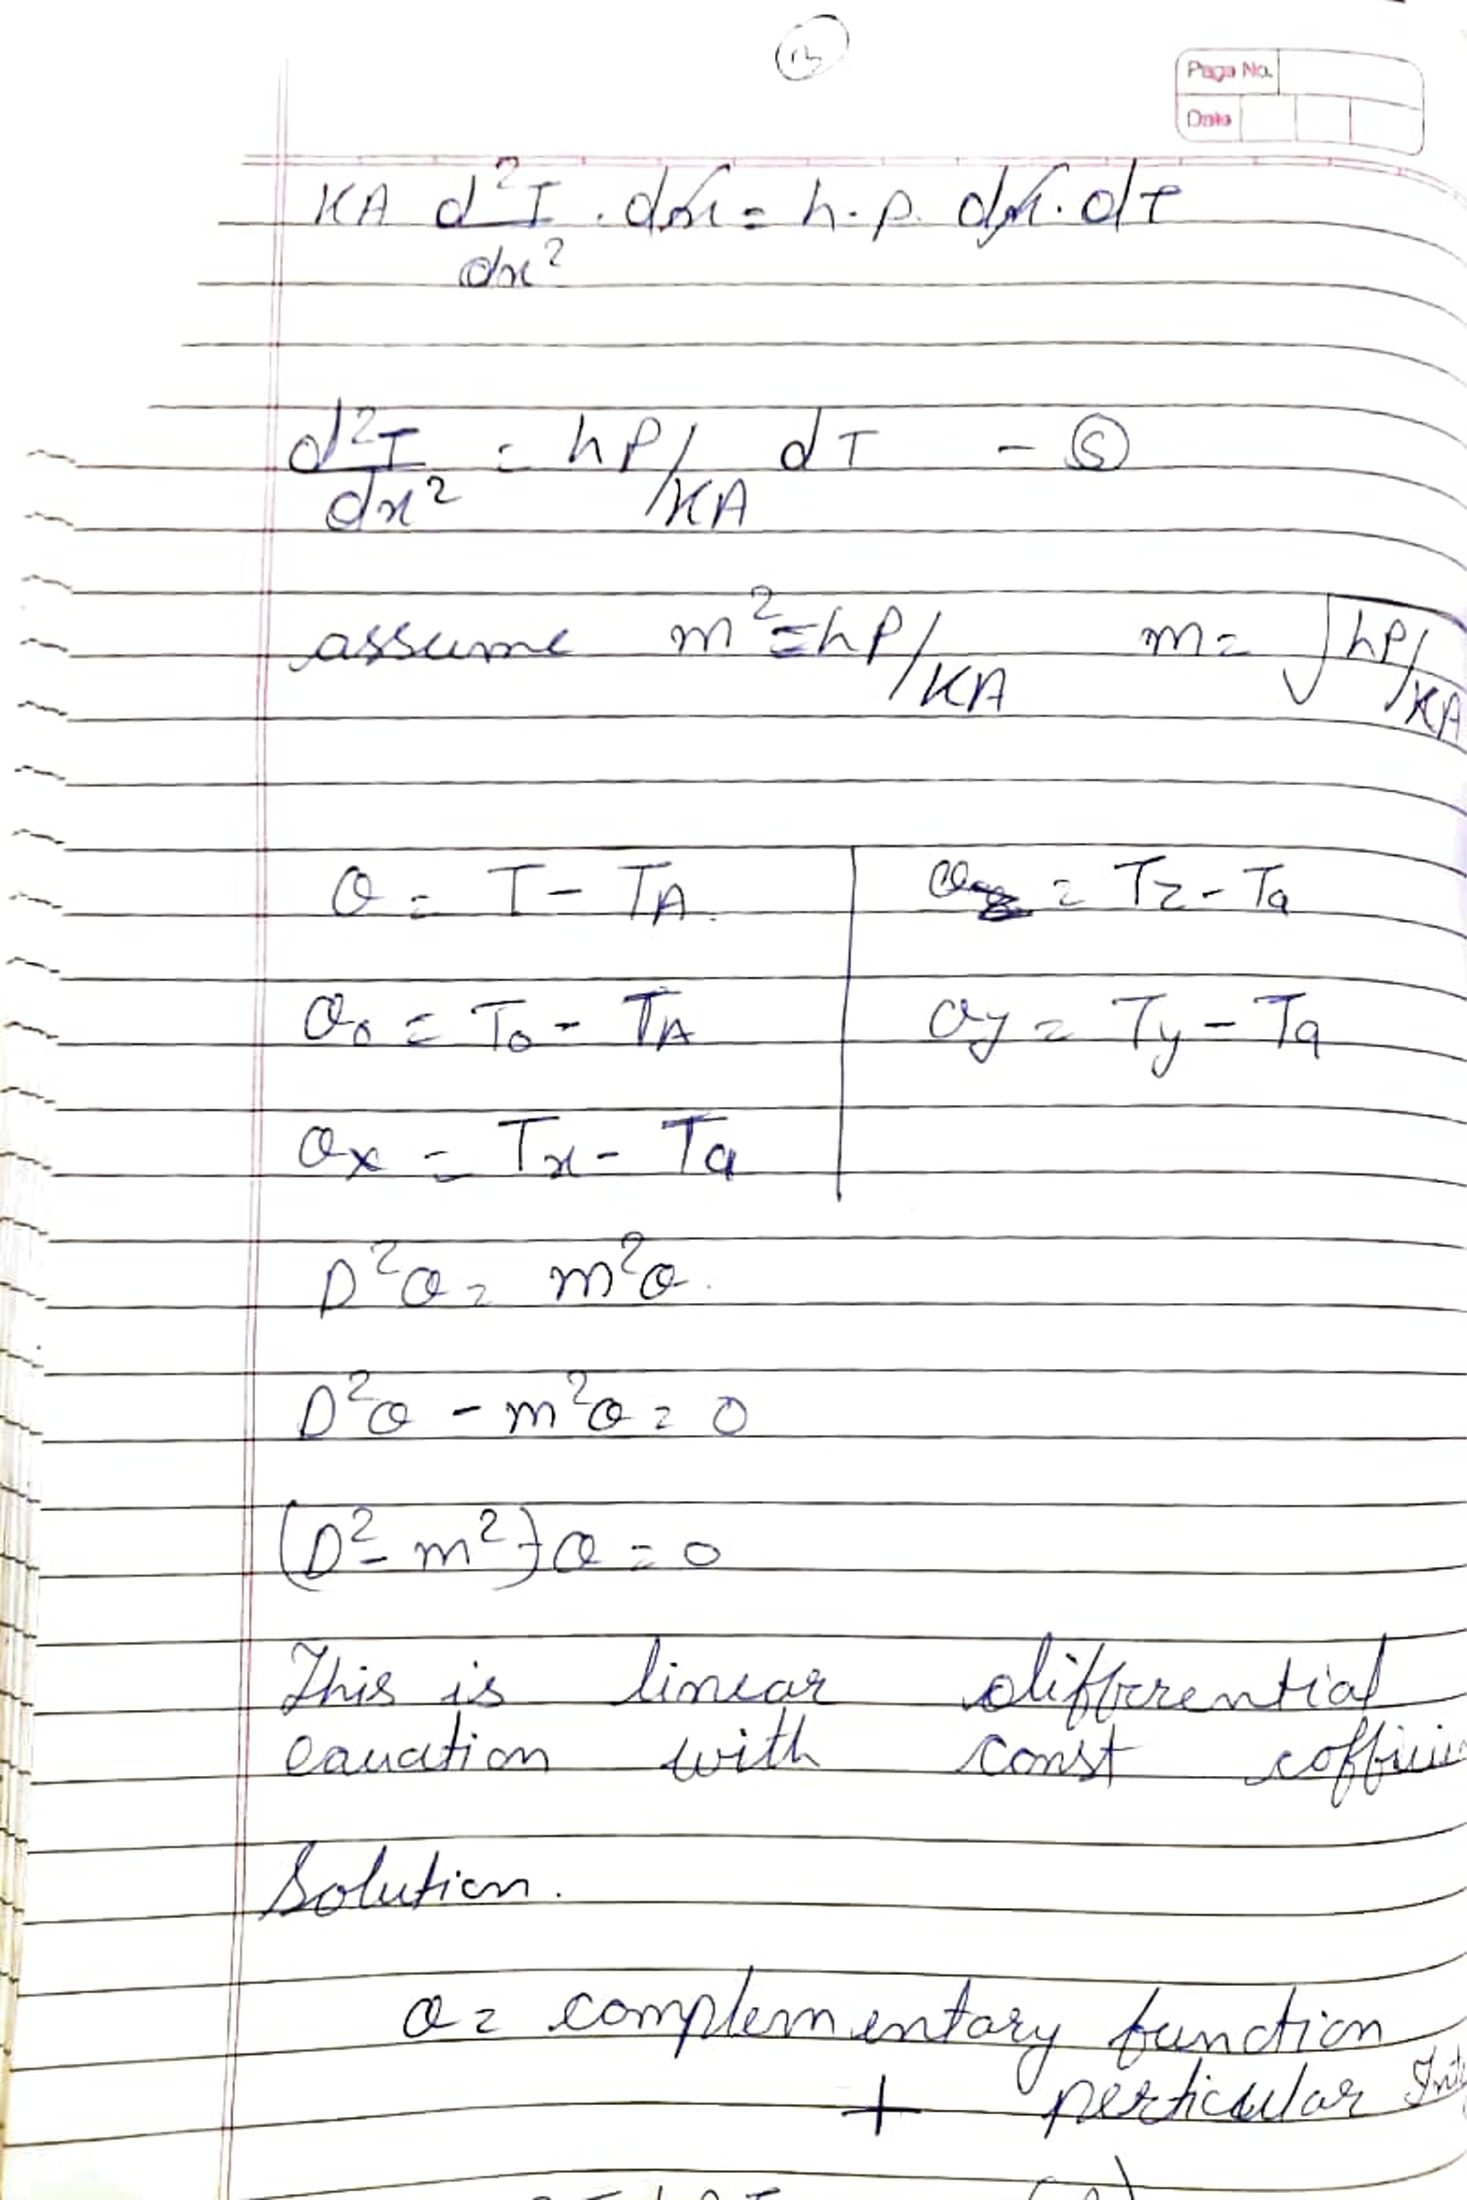 13
Page No.
Date
KA d²T/dx² . dx = h.p. dx. dT
d²T/dx² = hP/KA dT - ⑤
assume m² = hP/KA m = √hP/KA
θ = T - TA.
θz = Tz - Ta
θo = To - TA
θy = Ty - Ta
θx = Tx - Ta
D²θ = m²θ.
D²θ - m²θ = 0
(D² - m²)θ = 0
This is linear differential
eauation with const
Solution.
θ = complementary function
+ perticular